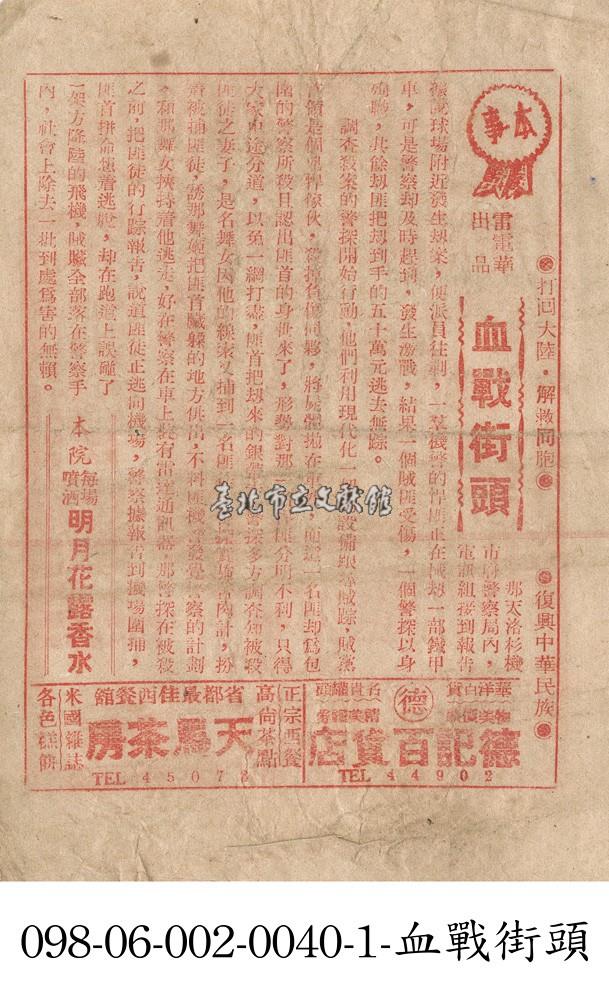 打回大陸・解救同胞
復興中華民族
本事
雷電華
出品
血戰街頭
那天洛杉機
市府警察局內，
電訊組接到報告
球場附近發生劫案，便派員往剿，一羣機警的悍匪正在械劫一部鐵甲
車，可是警察却及時趕到，發生激戰，結果一個賊匪受傷，一個警探以身
殉職，其餘刼匪把刼到手的五十萬元逃去無踪。
調查殺案的警探開始行動，他們利用現代化一 設備 賊踪，賊黨
首領是個 悍傢伙，
的警察所殺且認出匪首的身世來了，形勢對那 匪分明不利，只得
大家中途分道，以免一網打盡，匪首把刼來的銀 多方調查知被殺
匪徒之妻子，是名舞女因他的線索又捕到一名匪 肉計，扮
着被捕匪徒，誘那舞姬把匪首臟躲的地方供出，不料匪機 發覺警察的計劃
和那舞女挾持着他逃走，好在警察在車上裝有雷達通訊器，那警探在被殺
之前，把匪徒的行踪報告，說道匪徒正逃向機場，警察據報 到機場圍捕，
匪首拼命想着逃脫，却在跑道上誤碰了
一架方降陸的飛機，賊臟全部落在警察手
內，社會上除去一批到處爲害的無賴。
本院每場噴洒明月花露香水
華洋百貨
物美價廉
德
德記百貨店
TEL 44902
正宗西餐
高尚茶點
省都最佳西餐館
天馬茶房
TEL 45073
米國雜誌
各色糕餅
臺北市立文獻館
098-06-002-0040-1-血戰街頭